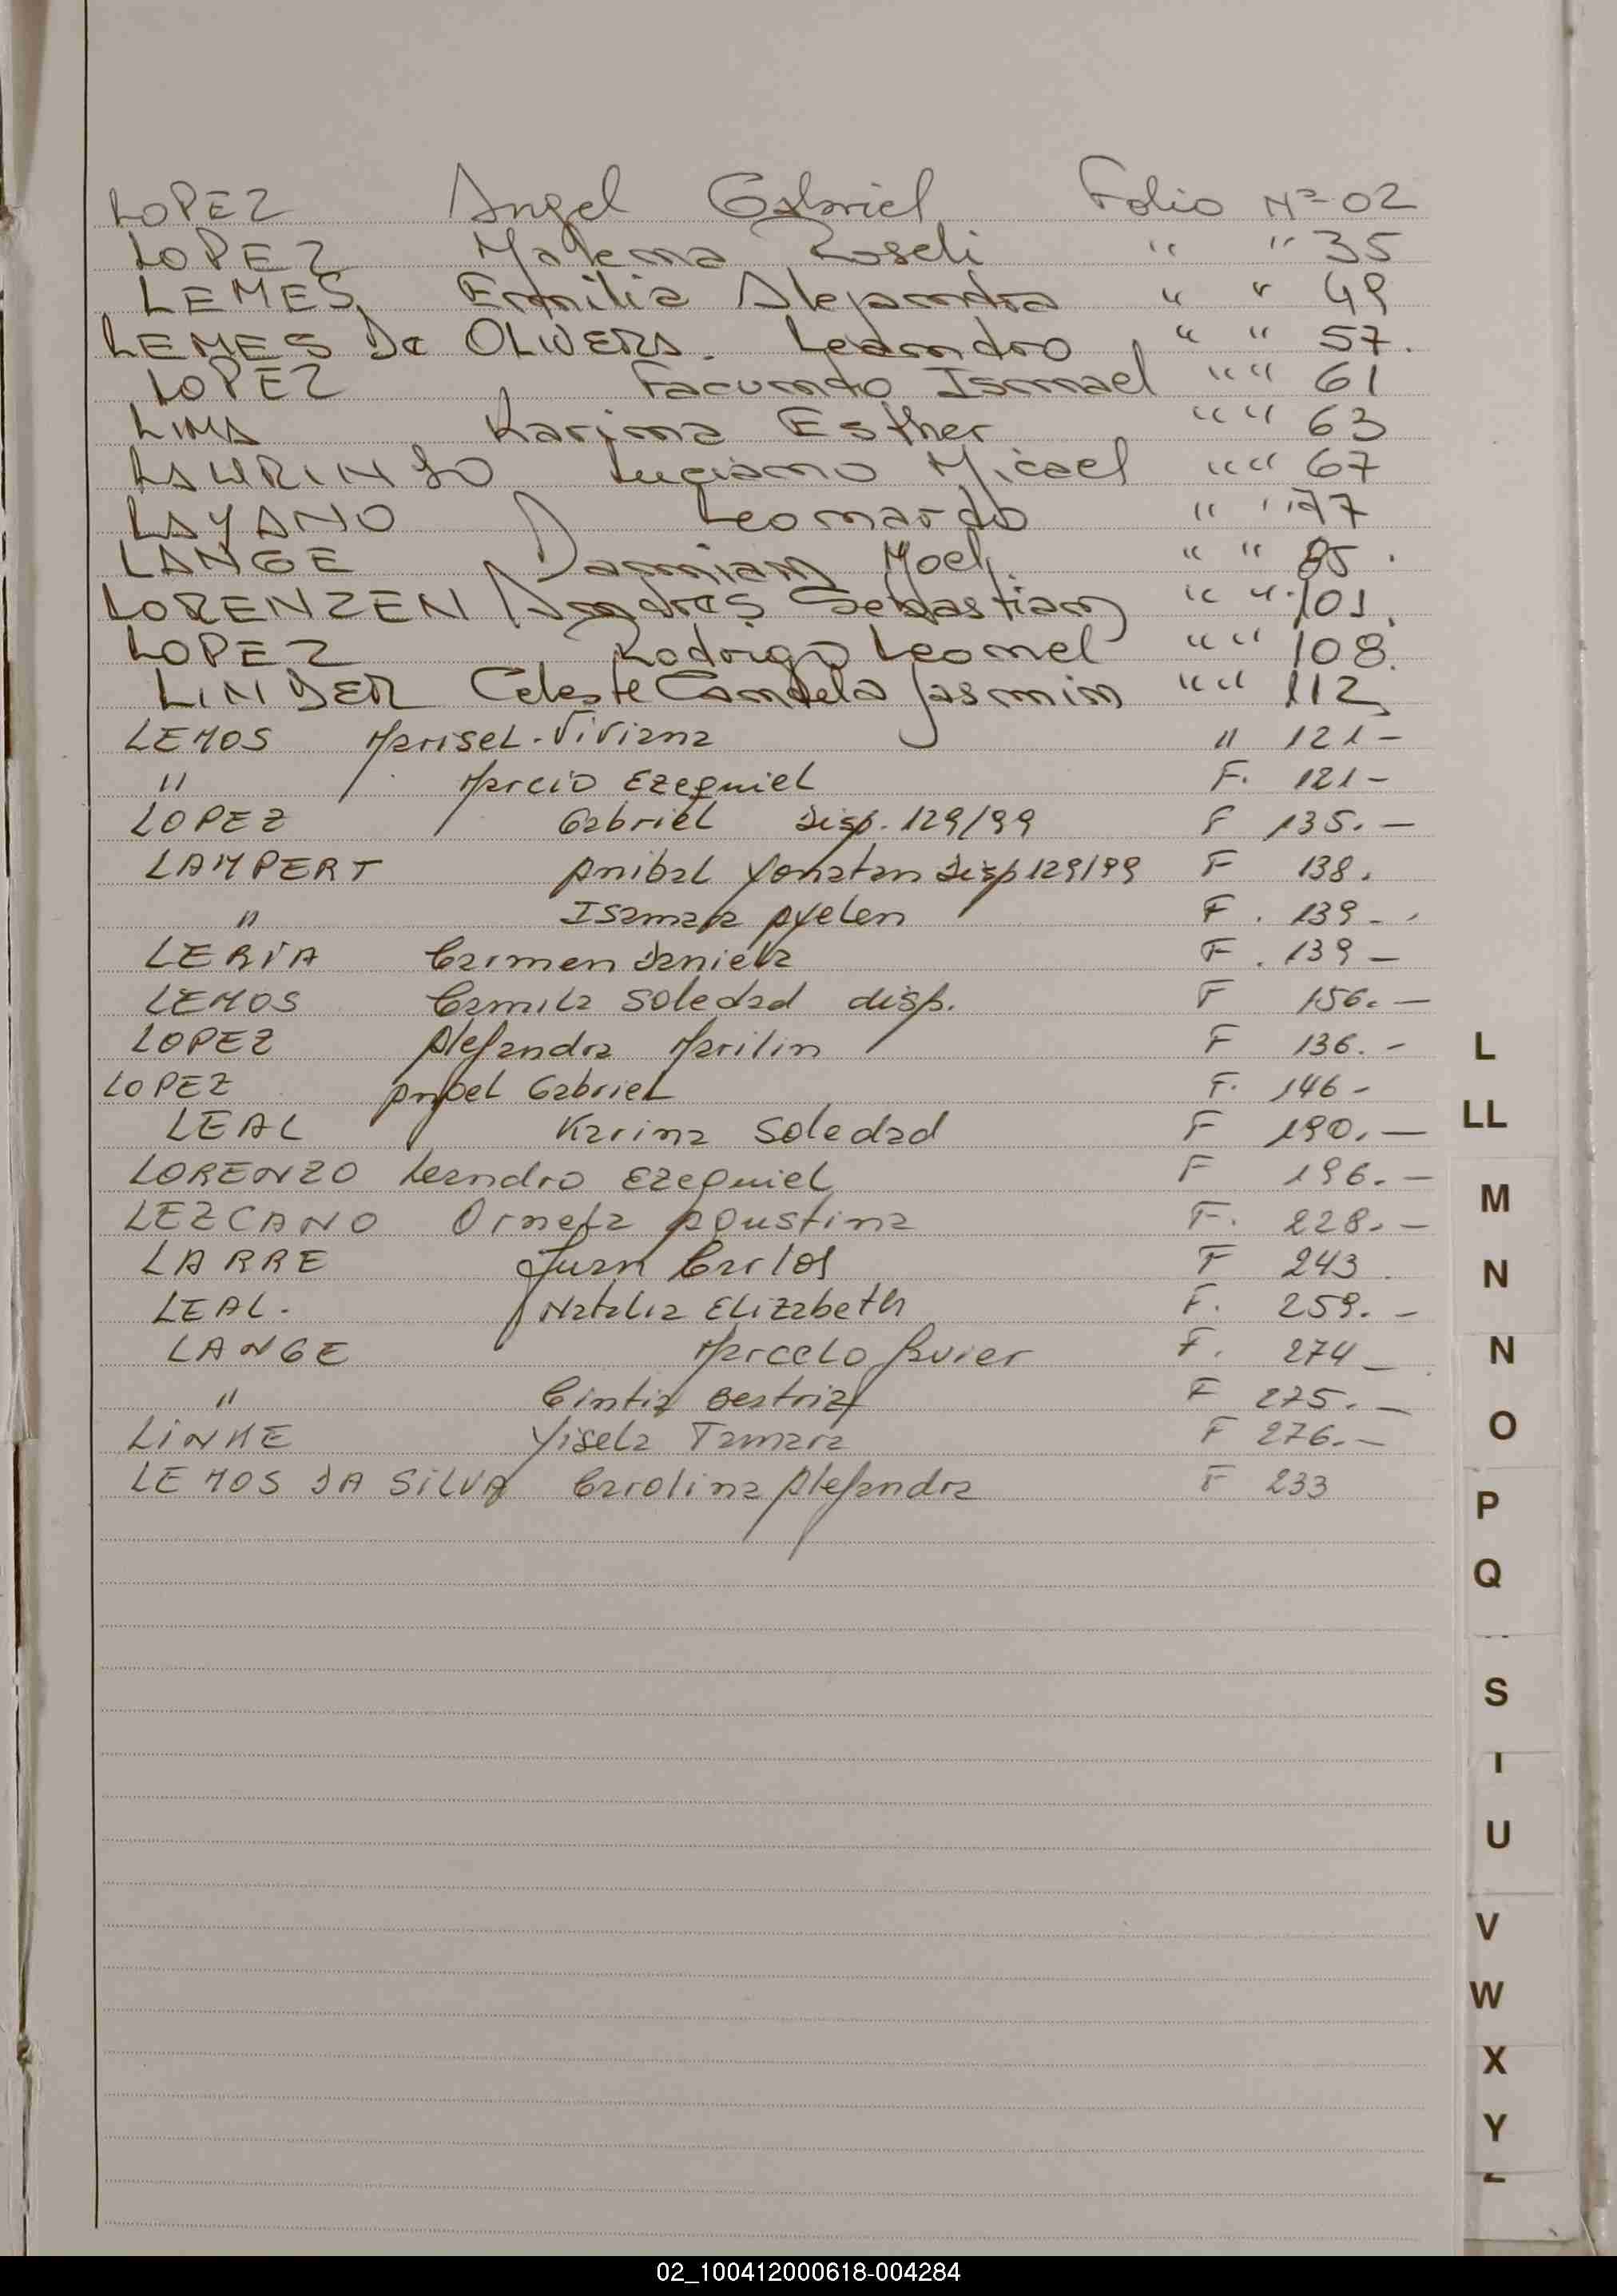 LOPEZ Angel Gabriel Folio Nº 02
LOPEZ Malema Roseli " " 35
LEMES Emilia Alejandra " " 49
LEMES De OLIVERA. Leandro " " 57.
LOPEZ Facundo Ismael " " 61
LIMA Karina Esther " " 63
LAURINDO Luciano Micael " " 67
LAYANO Leonardo " " 77
LANGE Damian Noel " " 85.
LORENZEN Andres Sebastian " " 101.
LOPEZ Rodrigo Leonel " " 108.
LINDER Celeste Candela Jasmin " " 112
LEMOS Marisel Viviana " 121-
" Marcio Ezequiel F. 121-
LOPEZ Gabriel Disp. 129/99 F 135.-
LAMPERT Anibal Yonatan Disp 129/99 F 138.
" Isamara Ayelen F. 139-.
LERIA Carmen Daniela F. 139-
LEMOS Camila Soledad disp. F 156.-
LOPEZ Alejandra Marilin F 136.-
LOPEZ Angel Gabriel F. 146-
LEAL Karina Soledad F 190.-
LORENZO Leandro Ezequiel F 196.-
LEZCANO Ornela Agustina F. 228.-
LARRE Juan Carlos F 243.
LEAL. Natalia Elizabeth F. 259.-
LANGE Marcelo Javier F. 274-
" Cintia Beatriz F 275.-
LINKE Yisela Tamara F 276.-
LEMOS DA SILVA Carolina Alejandra F 233
L
LL
M
N
N
O
P
Q
S
U
V
W
X
Y
02_100412000618-004284